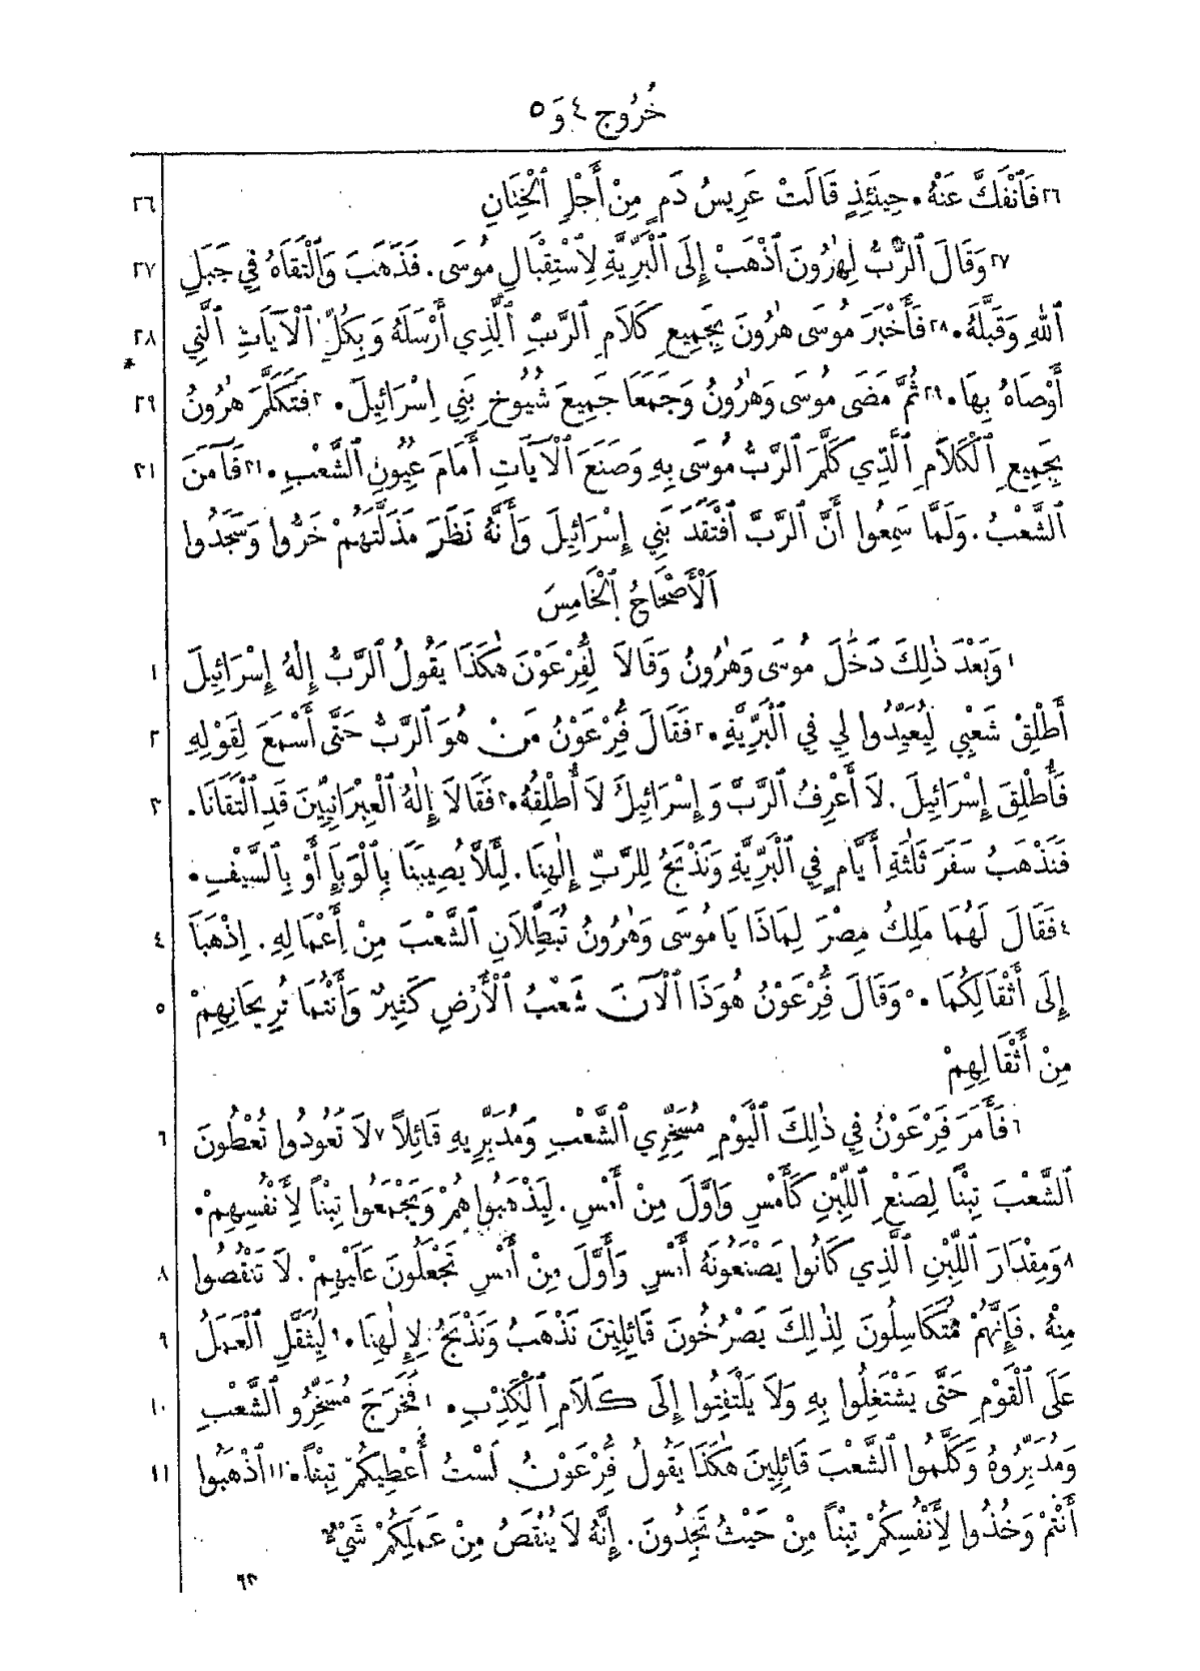 خُرُوج ٤ وَ ٥
٢٦ ٢٦ فَٱنْفَكَّ عَنْهُ. حِينَئِذٍ قَالَتْ عَرِيسُ دَمٍ مِنْ أَجْلِ ٱلْخِتَانِ
٢٧ ٢٧ وَقَالَ ٱلرَّبُّ لِهٰرُونَ ٱذْهَبْ إِلَى ٱلْبَرِّيَّةِ لِٱسْتِقْبَالِ مُوسَى. فَذَهَبَ وَٱلْتَقَاهُ فِي جَبَلِ
٢٨ ٱللهِ وَقَبَّلَهُ. ٢٨ فَأَخْبَرَ مُوسَى هٰرُونَ بِجَمِيعِ كَلَامِ ٱلرَّبِّ ٱلَّذِي أَرْسَلَهُ وَبِكُلِّ ٱلْآيَاتِ ٱلَّتِي
*
٢٩ أَوْصَاهُ بِهَا. ٢٩ ثُمَّ مَضَى مُوسَى وَهٰرُونُ وَجَمَعَا جَمِيعَ شُيُوخِ بَنِي إِسْرَائِيلَ. ٣٠ فَتَكَلَّمَ هٰرُونُ
٣١ بِجَمِيعِ ٱلْكَلَامِ ٱلَّذِي كَلَّمَ ٱلرَّبُّ مُوسَى بِهِ وَصَنَعَ ٱلْآيَاتِ أَمَامَ عُيُونِ ٱلشَّعْبِ. ٣١ فَآمَنَ
ٱلشَّعْبُ. وَلَمَّا سَمِعُوا أَنَّ ٱلرَّبَّ ٱفْتَقَدَ بَنِي إِسْرَائِيلَ وَأَنَّهُ نَظَرَ مَذَلَّتَهُمْ خَرُّوا وَسَجَدُوا
اَلْأَصْحَاحُ ٱلْخَامِسَ
١ ١ وَبَعْدَ ذٰلِكَ دَخَلَ مُوسَى وَهٰرُونُ وَقَالَا لِفِرْعَوْنَ هٰكَذَا يَقُولُ ٱلرَّبُّ إِلٰهُ إِسْرَائِيلَ
٢ أَطْلِقْ شَعْبِي لِيُعَيِّدُوا لِي فِي ٱلْبَرِّيَّةِ. ٢ فَقَالَ فِرْعَوْنُ مَنْ هُوَ ٱلرَّبُّ حَتَّى أَسْمَعَ لِقَوْلِهِ
٣ فَأُطْلِقَ إِسْرَائِيلَ. لَا أَعْرِفُ ٱلرَّبَّ وَإِسْرَائِيلَ لَا أُطْلِقُهُ. ٣ فَقَالَا إِلٰهُ ٱلْعِبْرَانِيِّينَ قَدِ ٱلْتَقَانَا.
فَنَذْهَبُ سَفَرَ ثَلَاثَةِ أَيَّامٍ فِي ٱلْبَرِّيَّةِ وَنَذْبَحُ لِلرَّبِّ إِلٰهِنَا. لِئَلَّا يُصِيبَنَا بِٱلْوَبَإِ أَوْ بِٱلسَّيْفِ.
٤ ٤ فَقَالَ لَهُمَا مَلِكُ مِصْرَ لِمَاذَا يَا مُوسَى وَهٰرُونُ تُبَطِّلَانِ ٱلشَّعْبَ مِنْ أَعْمَالِهِ. اِذْهَبَا
٥ إِلَى أَثْقَالِكُمَا. ٥ وَقَالَ فِرْعَوْنُ هُوَذَا ٱلْآنَ شَعْبُ ٱلْأَرْضِ كَثِيرٌ وَأَنْتُمَا تُرِيحَانِهِمْ
مِنْ أَثْقَالِهِمْ
٦ ٦ فَأَمَرَ فِرْعَوْنُ فِي ذٰلِكَ ٱلْيَوْمِ مُسَخِّرِي ٱلشَّعْبِ وَمُدَبِّرِيهِ قَائِلاً ٧ لَا تَعُودُوا تُعْطُونَ
ٱلشَّعْبَ تِبْنًا لِصَنْعِ ٱللِّبْنِ كَأَمْسِ وَاوَّلَ مِنْ أَمْسِ. لِيَذْهَبُوا هُمْ وَيَجْمَعُوا تِبْنًا لِأَنْفُسِهِمْ.
٨ ٨ وَمِقْدَارَ ٱللِّبْنِ ٱلَّذِي كَانُوا يَصْنَعُونَهُ أَمْسِ وَأَوَّلَ مِنْ أَمْسِ تَجْعَلُونَ عَلَيْهِمْ. لَا تَنْقُصُوا
٩ مِنْهُ. فَإِنَّهُمْ مُتَكَاسِلُونَ لِذٰلِكَ يَصْرُخُونَ قَائِلِينَ نَذْهَبُ وَنَذْبَحُ لِإِلٰهِنَا. ٩ لِيُثَقَّلِ ٱلْعَمَلُ
١٠ عَلَى ٱلْقَوْمِ حَتَّى يَشْتَغِلُوا بِهِ وَلَا يَلْتَفِتُوا إِلَى كَلَامِ ٱلْكَذِبِ. ١ فَخَرَجَ مُسَخِّرُو ٱلشَّعْبِ
١١ وَمُدَبِّرُوهُ وَكَلَّمُوا ٱلشَّعْبَ قَائِلِينَ هٰكَذَا يَقُولُ فِرْعَوْنُ لَسْتُ أُعْطِيكُمْ تِبْنًا. ١١ اَذْهَبُوا
أَنْتُمْ وَخُذُوا لِأَنْفُسِكُمْ تِبْنًا مِنْ حَيْثُ تَجِدُونَ. إِنَّهُ لَا يُنْقَصُ مِنْ عَمَلِكُمْ شَيْءٌ
٩٣